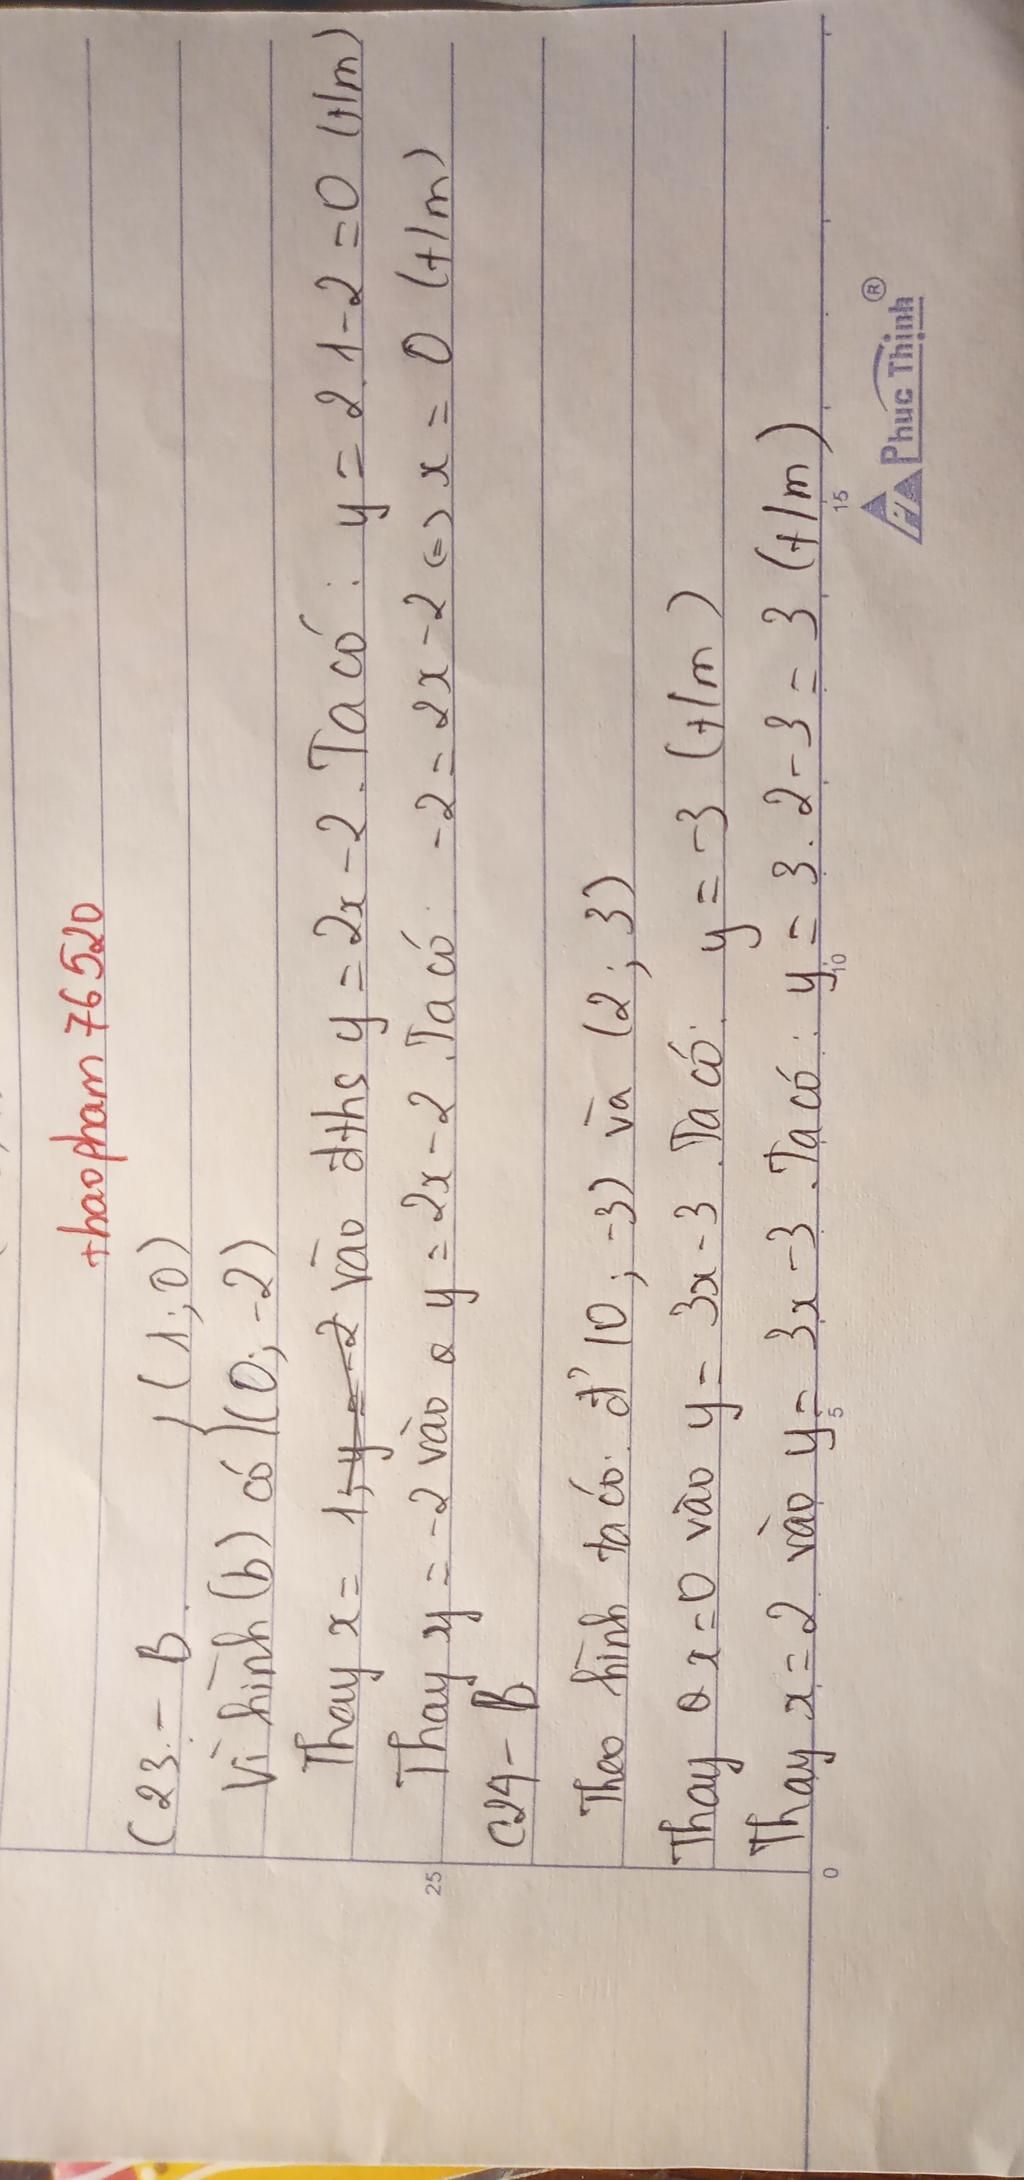 thaopham 76520
C23.- B.
Vì hình (b) có { (1; 0)
(0; -2)
Thay x = 1, y = -2 vào đths y = 2x - 2. Ta có: y = 2.1 - 2 = 0 (t/m)
Thay y = -2 vào y = 2x - 2. Ta có: -2 = 2x - 2 <=> x = 0 (t/m)
C24 - B
Theo hình ta có: đ' (0; -3) và (2; 3)
Thay x = 0 vào y = 3x - 3. Ta có: y = -3 (t/m)
Thay x = 2 vào y = 3x - 3. Ta có: y = 3.2 - 3 = 3 (t/m)
25
0
5
10
15
Phúc Thịnh ®